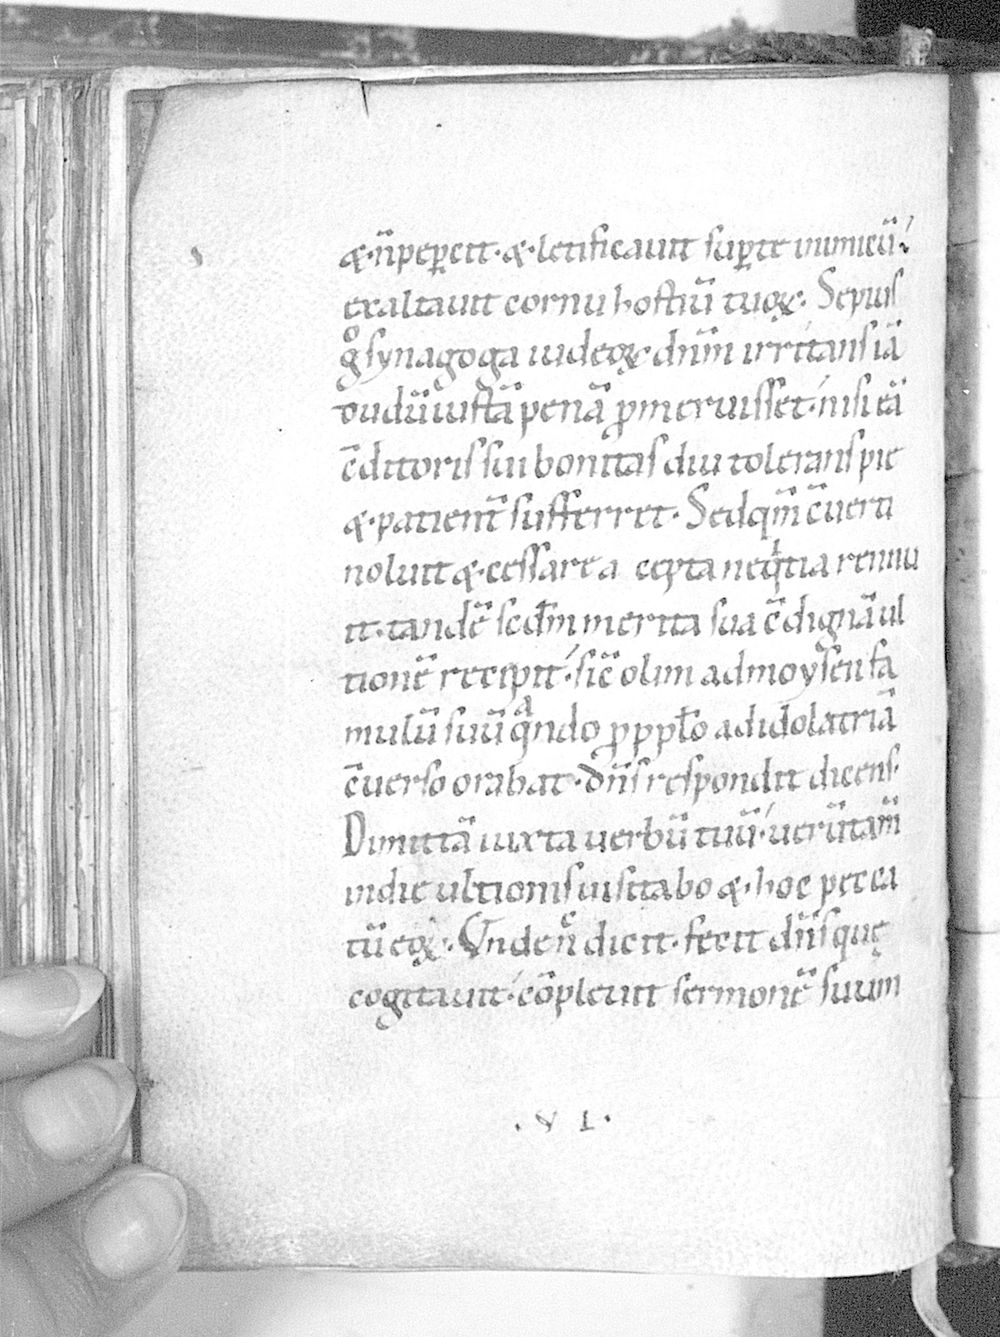 &·n̄ pep̄cit·&·letificauit sup̄ te inimicū·
exaltauit cornu hostiū tuoꝝ· Sepius
g̊ synagoga iudeoꝝ dn̄m irritans iā
dudū iustā penā ꝓmeruisset· nisi eā
c̄ditoris sui bonitas diu tolerans pie
&·patient̄ sufferret· Sed qm̄ c̄uerti
noluit &·cessare a cepta neqͥtia rennu
it·tandē scd̄m merita sua c̄dignā ul
tionē recepit· sic̄ olim ad moysen fa
mulū suū qͣndo ꝓ ppl̄o ad idolatriā
c̄uerso orabat· dn̄s respondit dicens·
Dimittā iuxta uerbū tuū· uerūtam̄
in die ultionis uisitabo &·hoc pecca
tū eoꝝ· Unde n̄c dicit·fecit dn̄s quę
cogitauit·cōpleuit sermonē suum
·V I·